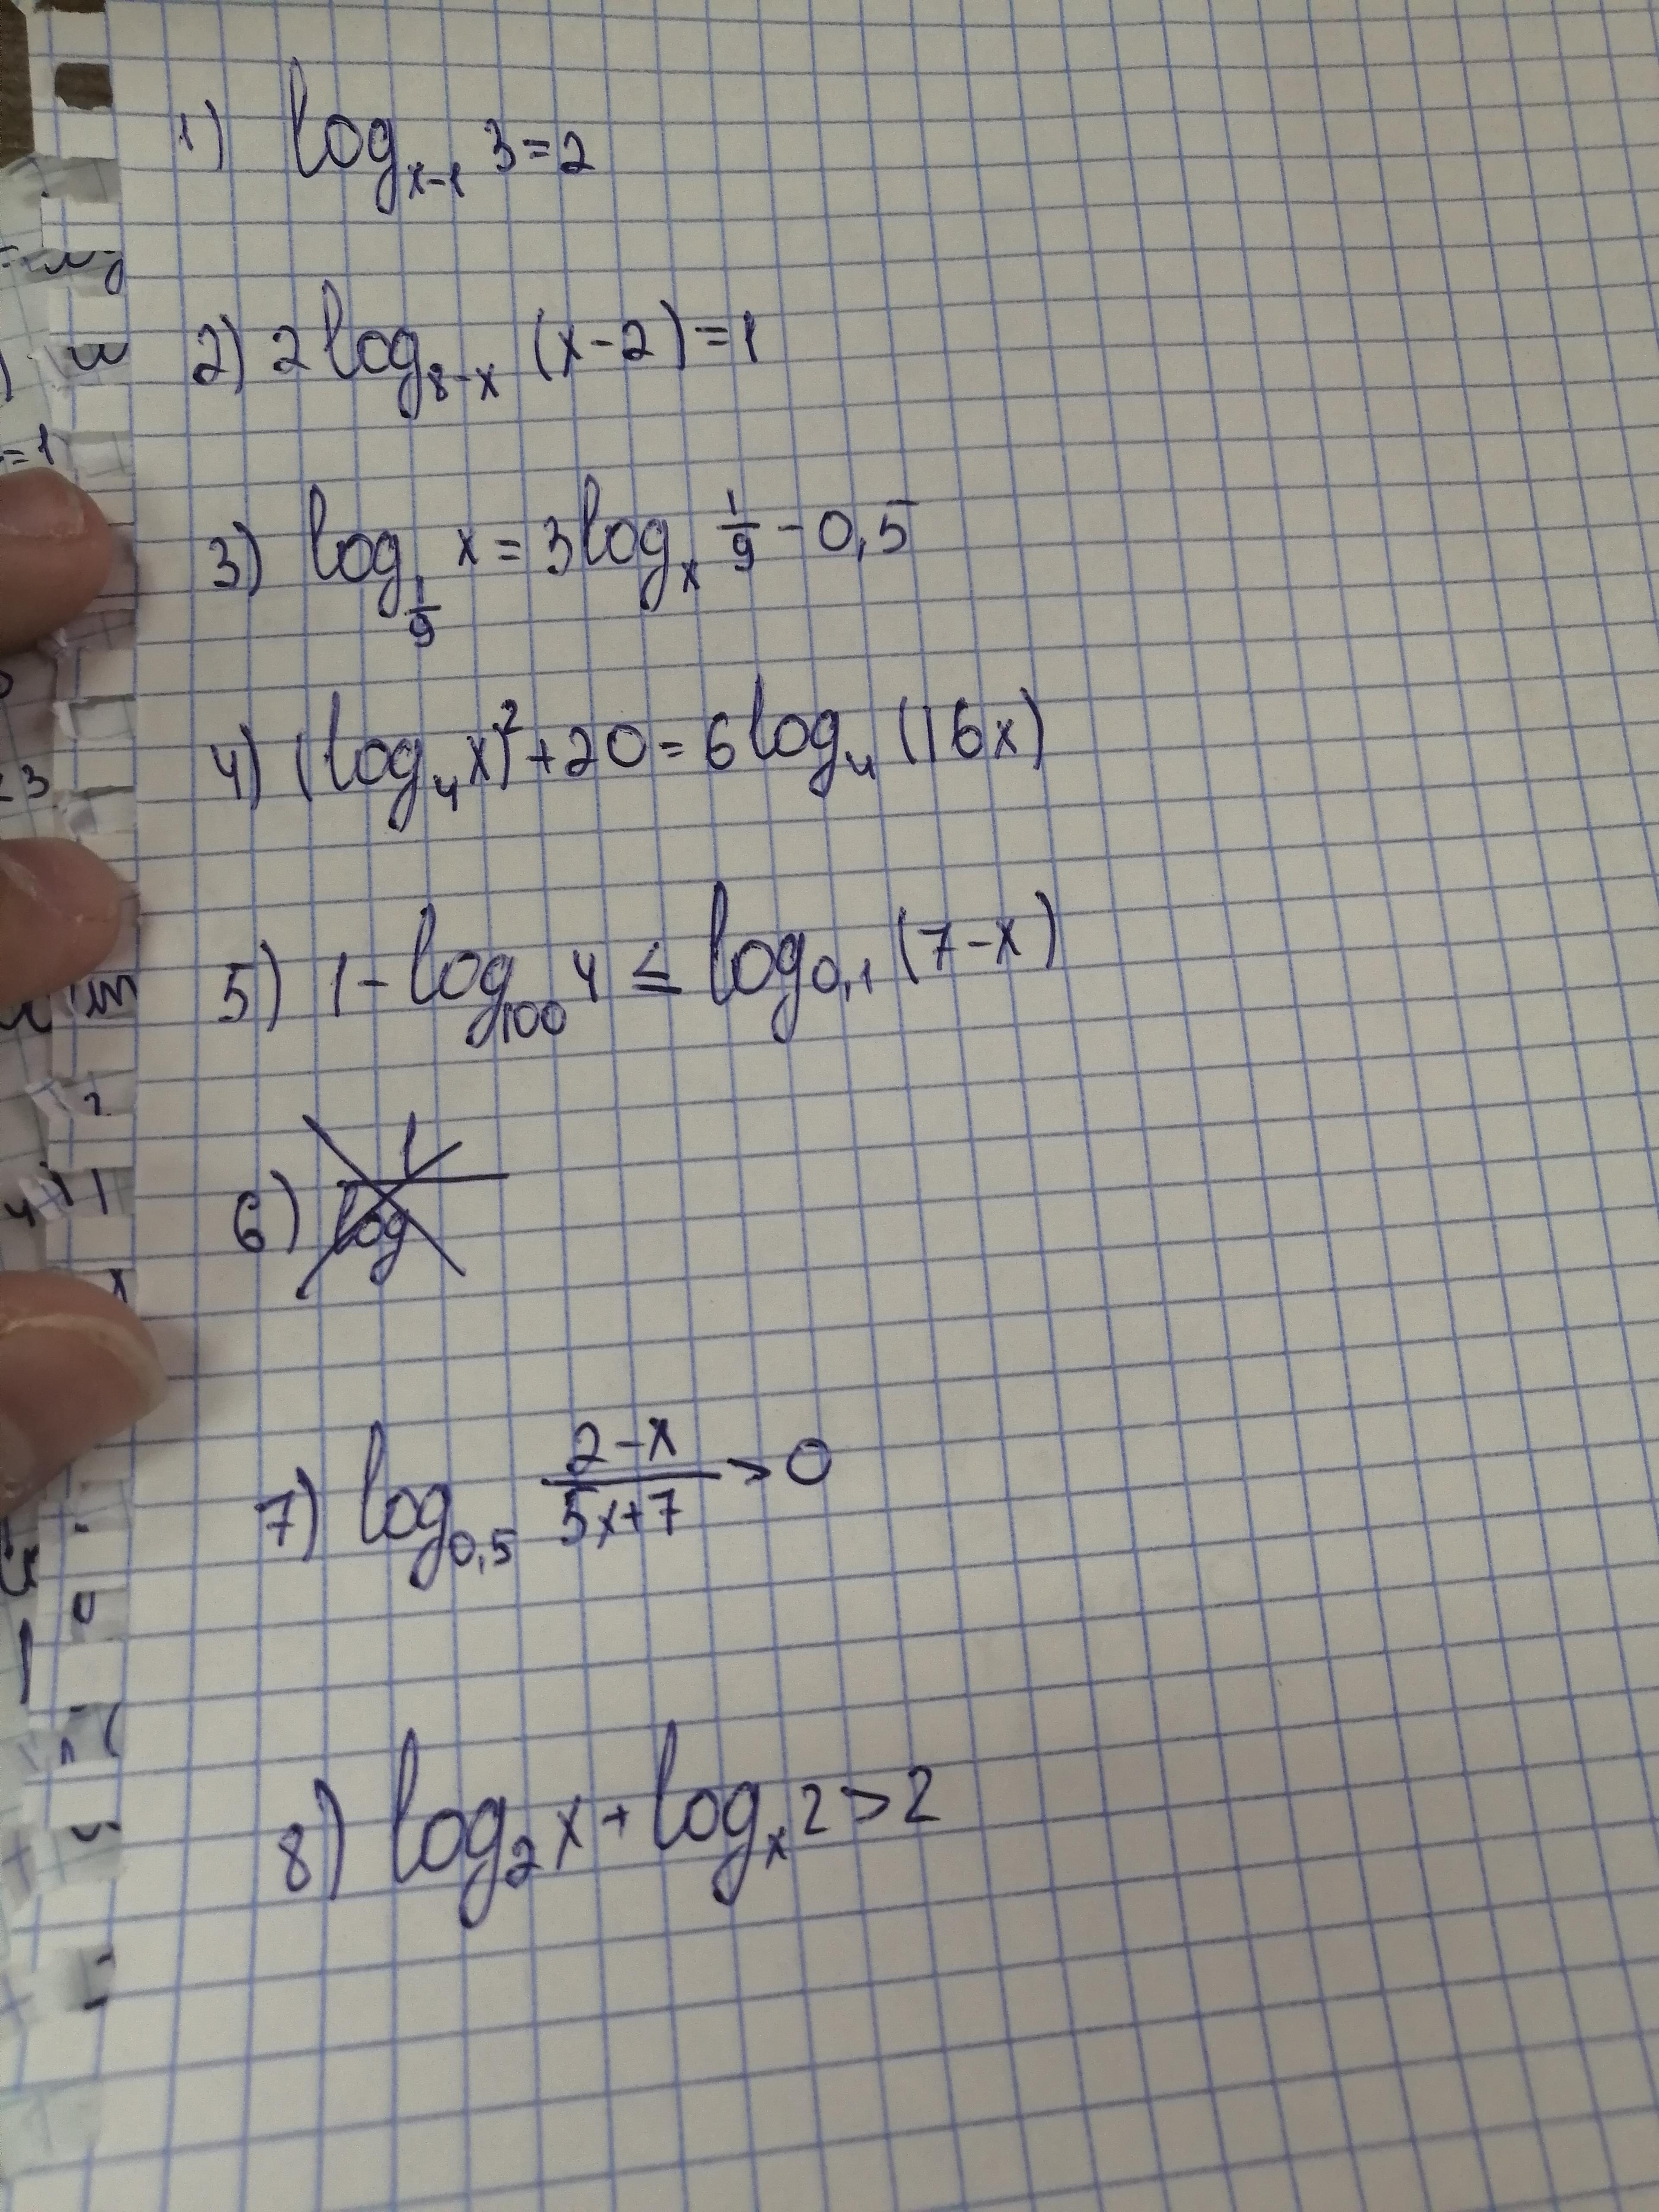 1) log_{x-1} 3=2
2) 2log_{8-x} (x-2)=1
3) log_{1/9} x = 3log_x 1/9 - 0,5
4) (log_4 x)^2 + 20 = 6log_4 (16x)
5) 1 - log_{100} 4 ≤ log_{0,1} (7-x)
6) 1/log
7) log_{0,5} (2-x)/(5x+7) > 0
8) log_2 x + log_x 2 > 2